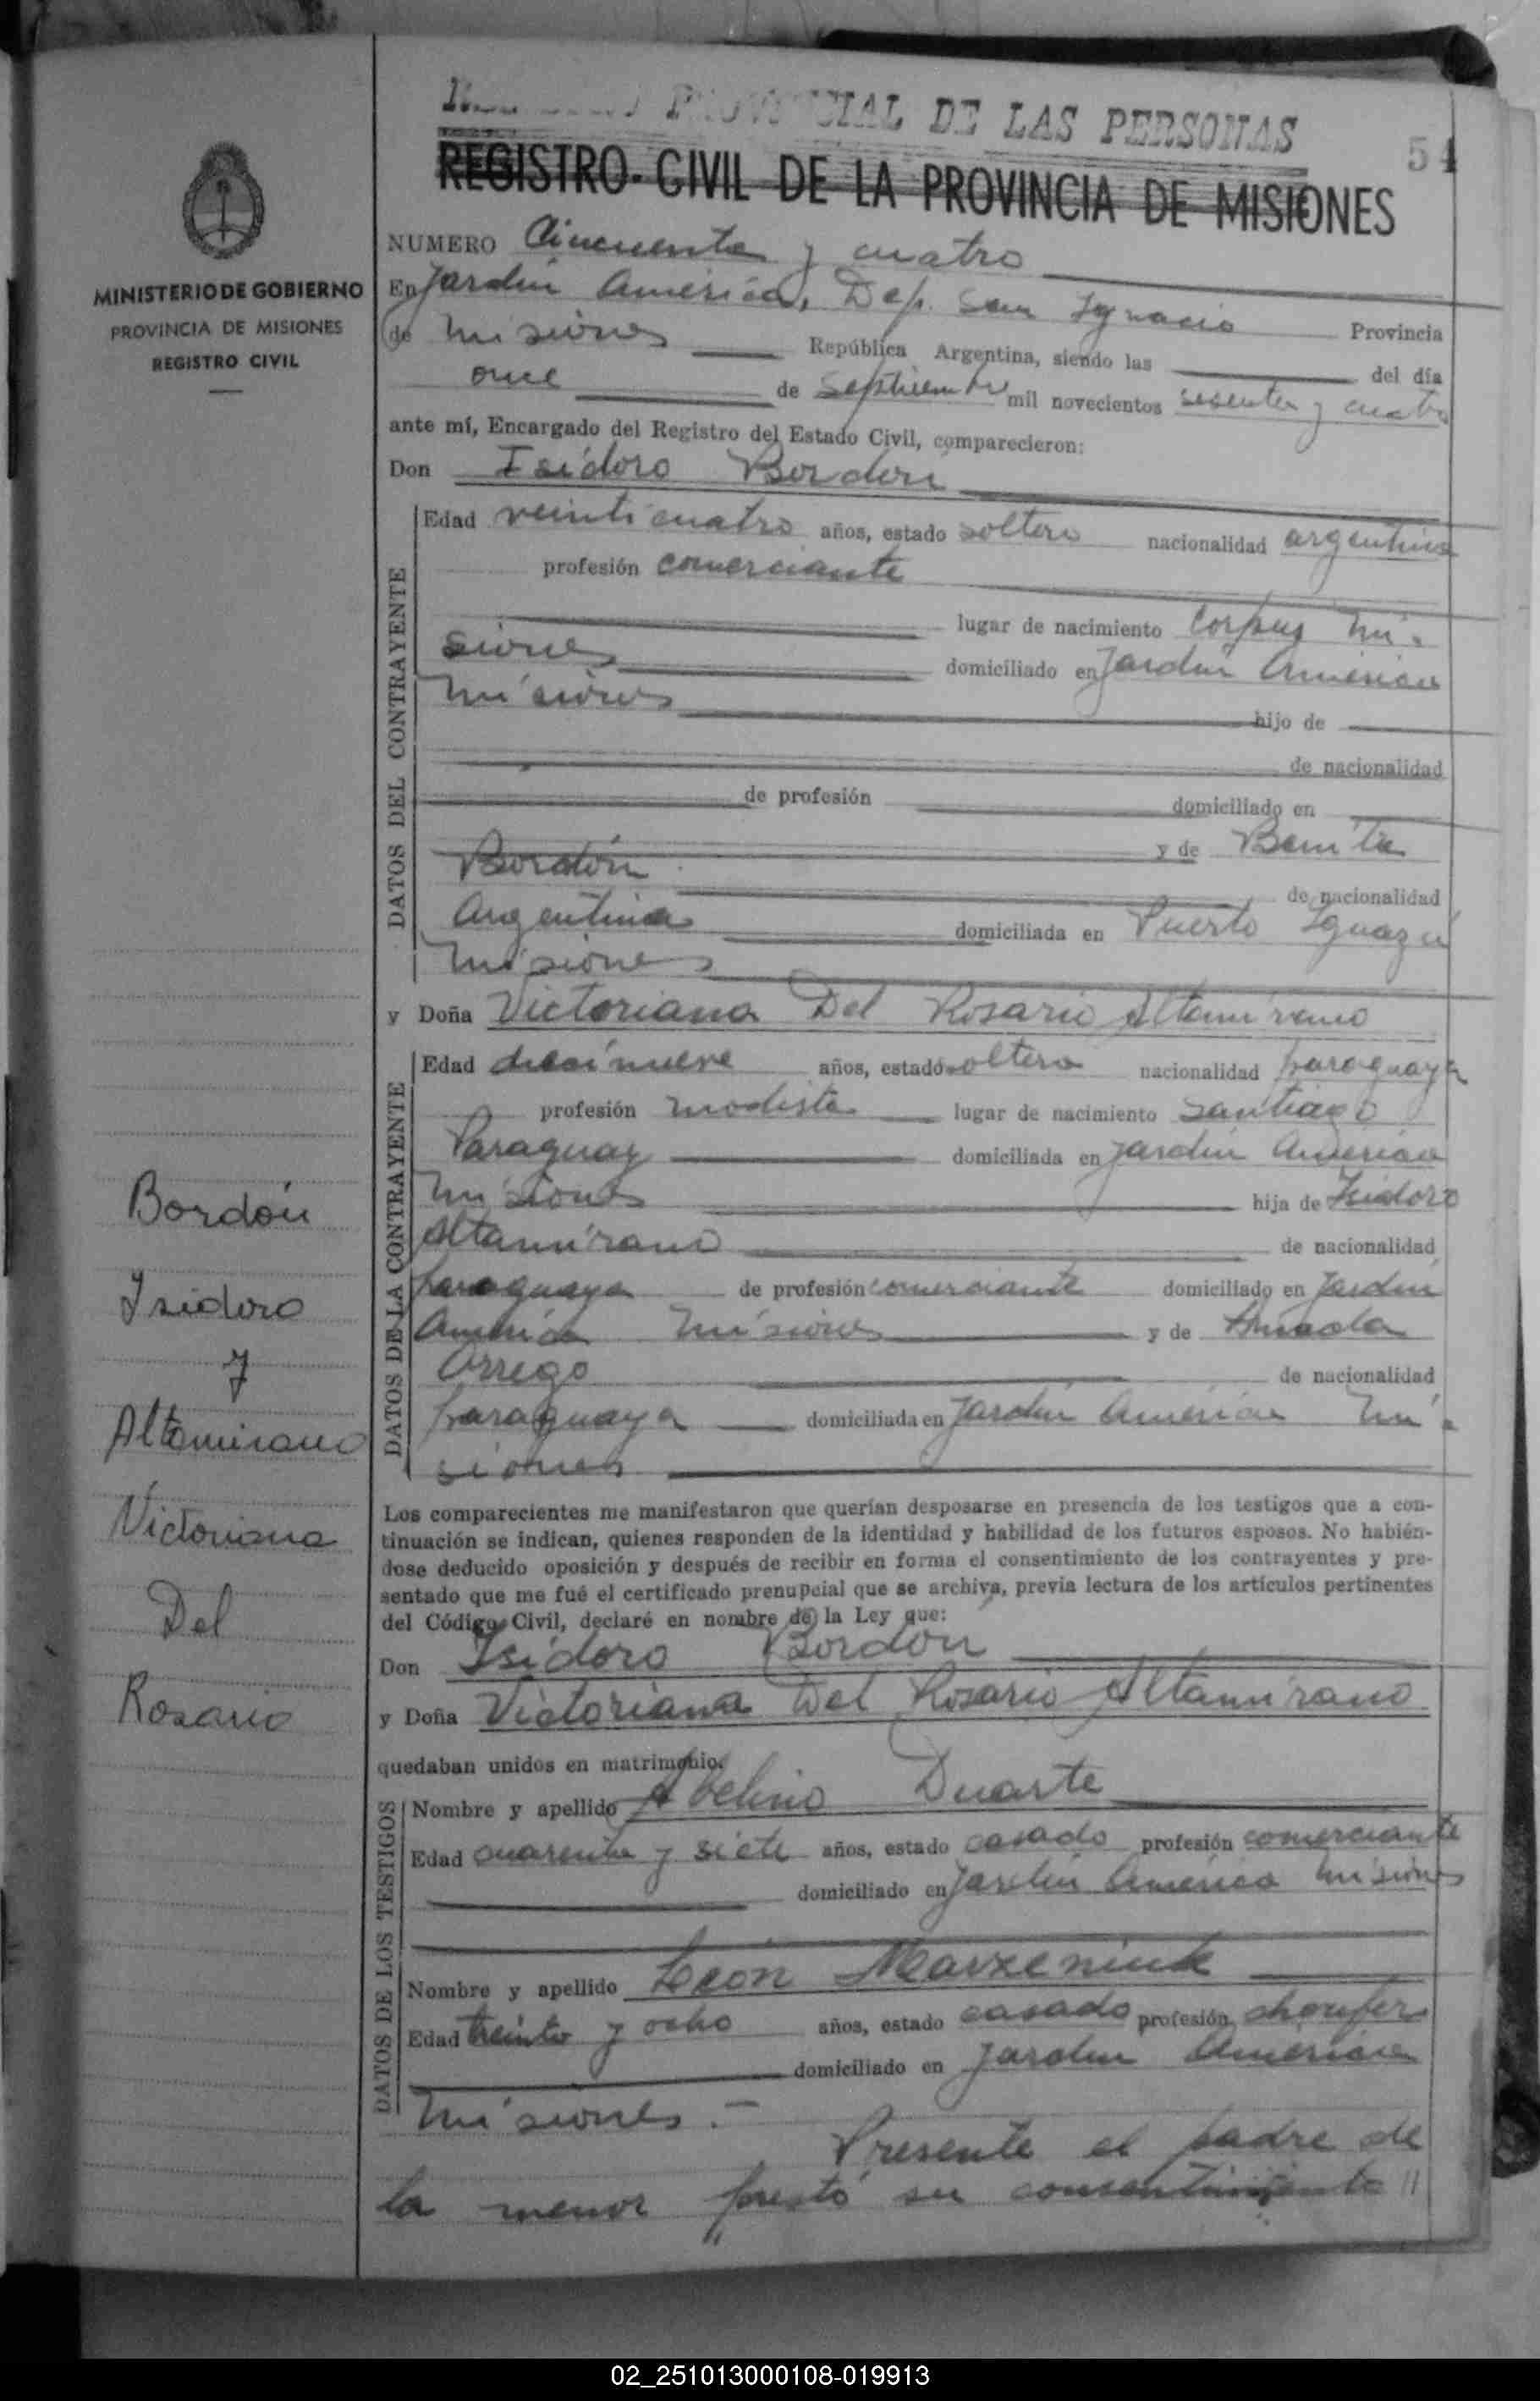 PROVINCIAL DE LAS PERSONAS
54
REGISTRO CIVIL DE LA PROVINCIA DE MISIONES
MINISTERIO DE GOBIERNO
PROVINCIA DE MISIONES
REGISTRO CIVIL
NUMERO Cincuenta y cuatro
En Jardín América, Dep. San Ignacio Provincia
de Misiones República Argentina, siendo las del día
once de Septiembre mil novecientos sesenta y cuatro
ante mí, Encargado del Registro del Estado Civil, comparecieron:
Don Isidoro Bordón
DATOS DEL CONTRAYENTE
Edad veinticuatro años, estado soltero nacionalidad argentina
profesión comerciante
lugar de nacimiento Corpus Mi-
siones domiciliado en Jardín América
Misiones hijo de
de nacionalidad
de profesión domiciliado en
y de Benita
Bordón de nacionalidad
Argentina domiciliada en Puerto Iguazú
Misiones
y Doña Victoriana Del Rosario Altamirano
DATOS DE LA CONTRAYENTE
Edad diecinueve años, estado soltera nacionalidad paraguaya
profesión modista lugar de nacimiento Santiago
Paraguay domiciliada en Jardín América
Misiones hija de Isidoro
Altamirano de nacionalidad
paraguaya de profesión comerciante domiciliado en Jardín
América Misiones y de
Orrego de nacionalidad
paraguaya domiciliada en Jardín América Mi-
siones
Bordón
Isidoro
y
Altamirano
Victoriana
Del
Rosario
Los comparecientes me manifestaron que querían desposarse en presencia de los testigos que a con-
tinuación se indican, quienes responden de la identidad y habilidad de los futuros esposos. No habién-
dose deducido oposición y después de recibir en forma el consentimiento de los contrayentes y pre-
sentado que me fué el certificado prenupcial que se archiva, previa lectura de los artículos pertinentes
del Código Civil, declaré en nombre de la Ley que:
Don Isidoro Bordón
y Doña Victoriana Del Rosario Altamirano
quedaban unidos en matrimonio.
DATOS DE LOS TESTIGOS
Nombre y apellido Abelino Duarte
Edad cuarenta y siete años, estado casado profesión comerciante
domiciliado en Jardín América Misiones
Nombre y apellido León Marzeniuk
Edad treinta y ocho años, estado casado profesión choufer
domiciliado en Jardín América
Misiones.-
Presente el padre de
la menor prestó su consentimiento //
02_251013000108-019913